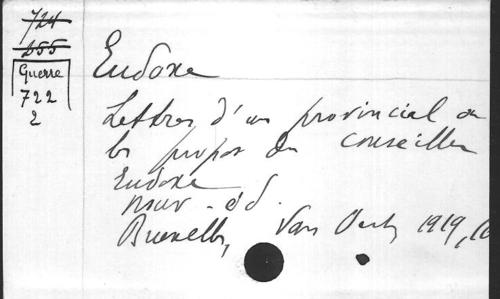 724
255
Guerre
722
2
Eudoxe
Lettres d'un provincial ou
les propos du conseiller
Eudoxe
nouv. éd.
Bruxelles, Van Oest, 1919, 16